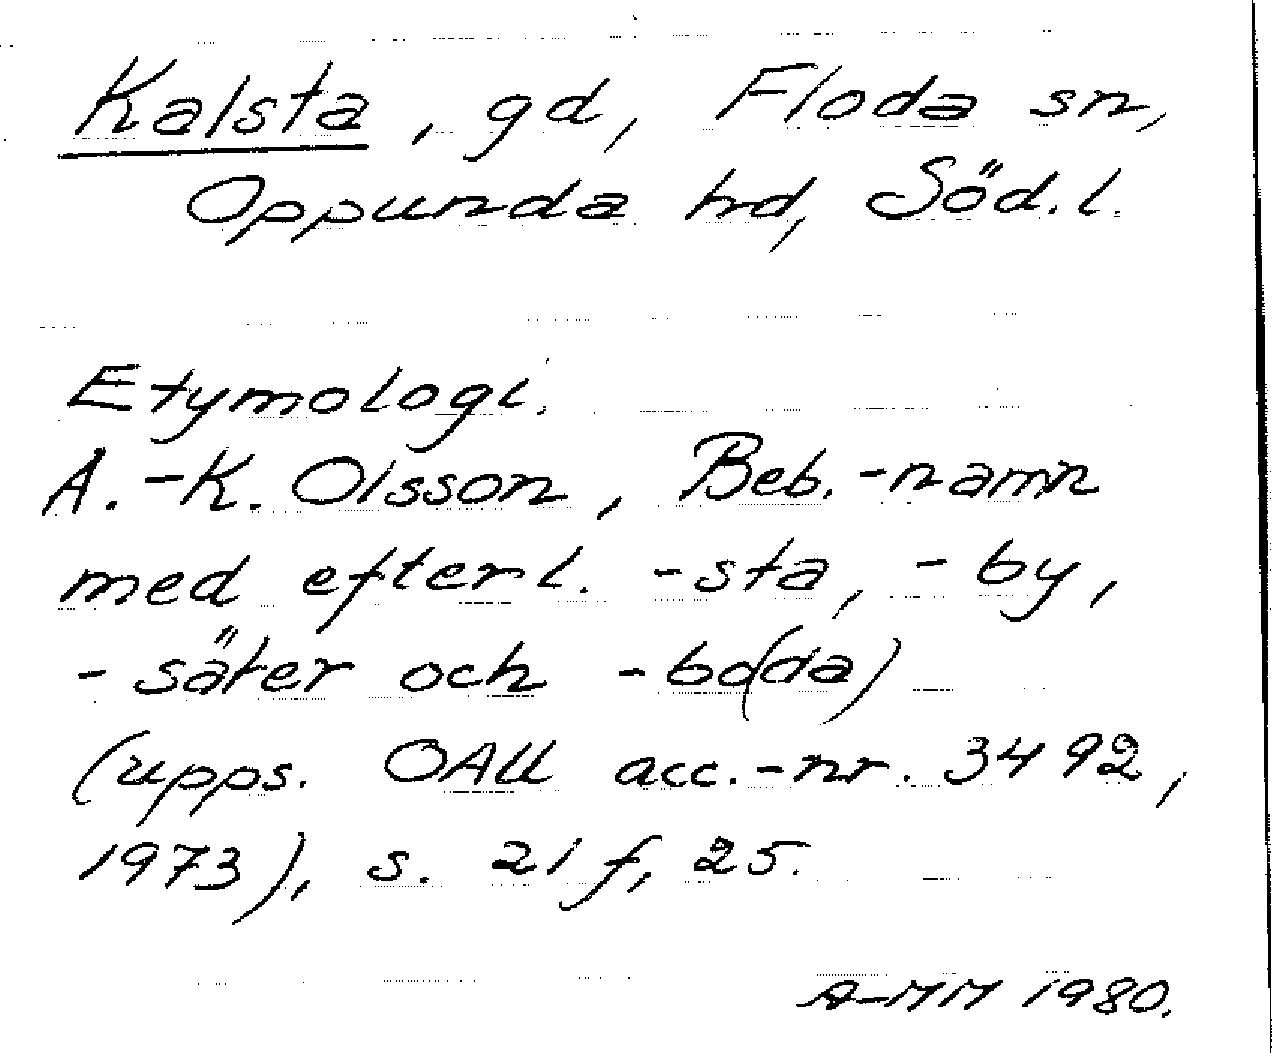 Kalsta, gd, Floda sn,
Oppunda hd, Söd.l.
Etymologi.
A.-K. Olsson, Beb.-namn
med efterl. -sta, -by,
-säter och -bo(da)
(upps. OAU acc.-nr. 3492,
1973), s. 21 f, 25.
A-MM 1980.